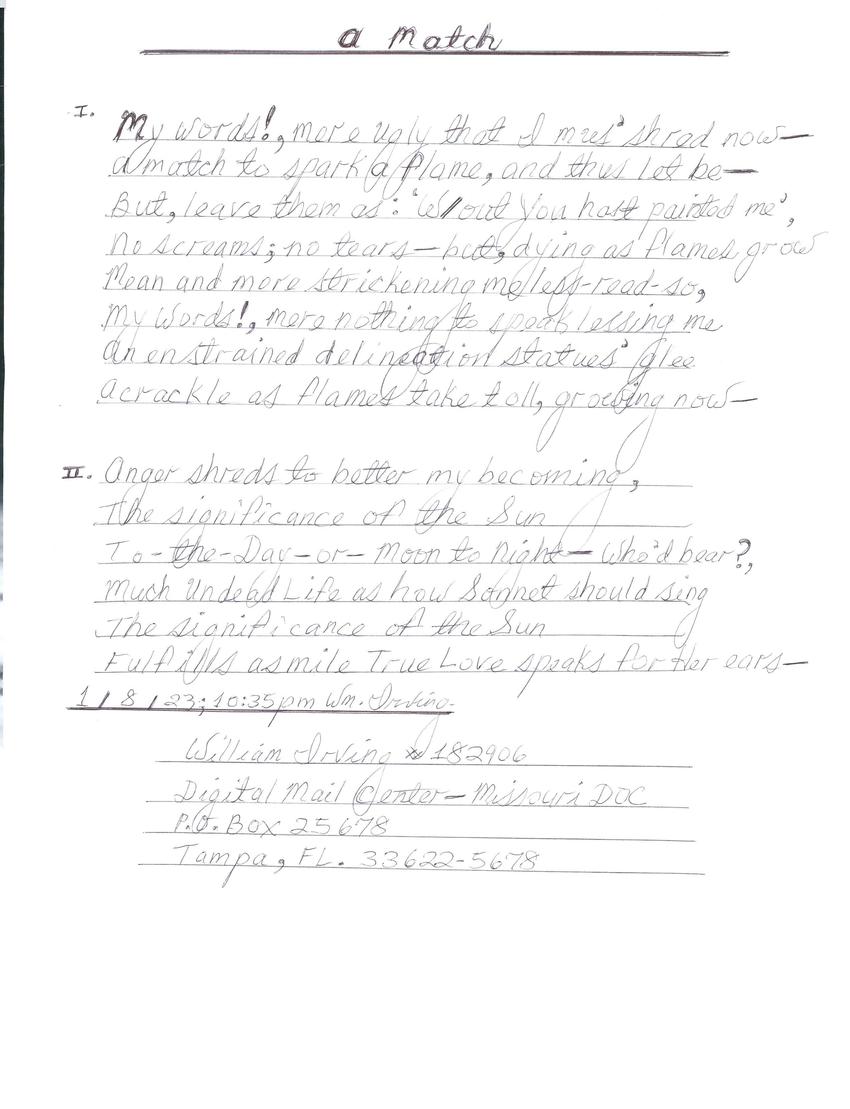 a Match
I. My words!, mere ugly that I mus' shred now—
a match to spark a flame, and thus let be—
But, leave them as: 'W/out You hast painted me',
No screams; no tears—but, dying as flames grow
Mean and more strickening me/less-read-so,
My Words!, mere nothing to speak lessing me
An enstrained delineation statues' glee
Acrackle as flames take toll, growing now—
II. Anger shreds to better my becoming,
The significance of the Sun
To-the-Day-or-Moon to Night—Who'd bear?,
Much Undead Life as how Sonnet should sing
The significance of the Sun
Fulfills asmile True Love speaks for Her ears—
1/8/23; 10:35pm Wm. Irving.
William Irving 182906
Digital Mail Center—Missouri DOC
P.O. Box 25678
Tampa, FL. 33622-5678